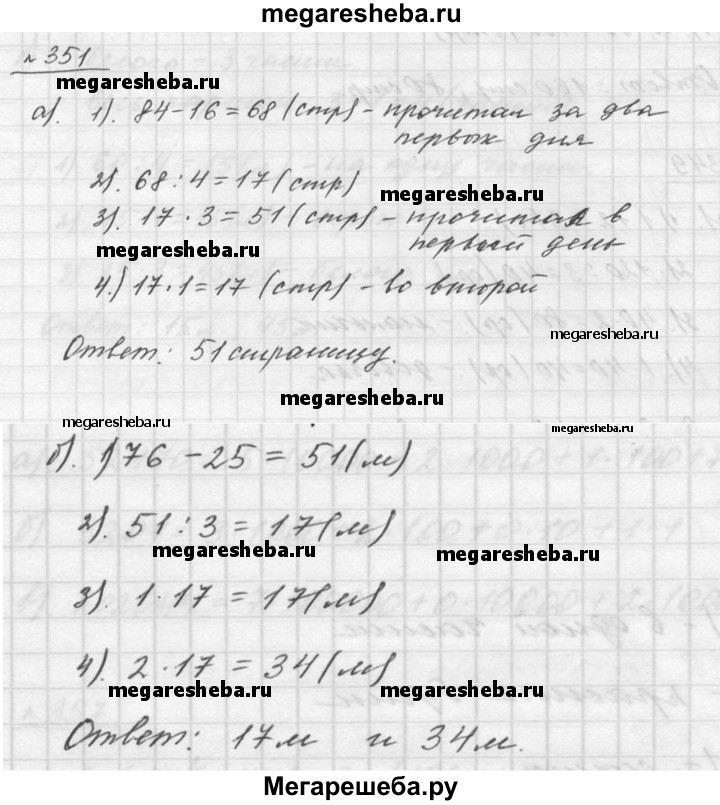 megaresheba.ru
№ 351
megaresheba.ru
а). 1). 84-16=68 (стр) - прочитал за два
первых дня
2). 68:4=17 (стр)
megaresheba.ru
3). 17·3=51 (стр) - прочитал в
первый день
megaresheba.ru
4.) 17·1=17 (стр) - во второй
megaresheba.ru
Ответ: 51 страницу.
megaresheba.ru
megaresheba.ru
megaresheba.ru
б). 1) 76-25=51(м)
2). 51:3=17(м)
megaresheba.ru
megaresheba.ru
3). 1·17=17(м)
4). 2·17=34(м)
megaresheba.ru
megaresheba.ru
Ответ: 17м и 34м.
Мегарешеба.ру